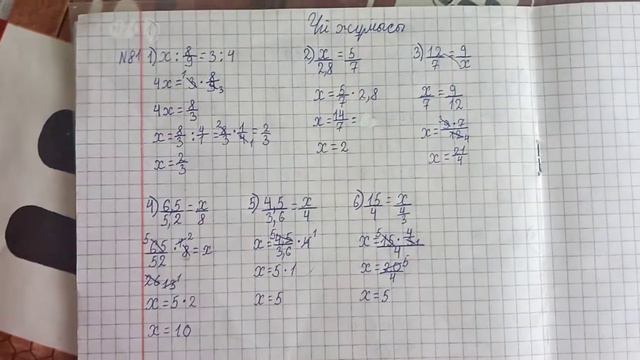 Үй жұмысы
№81 1) x : 8/9 = 3 : 4
4x = 3 · 8/9
4x = 8/3
x = 8/3 : 4/1 = 8/3 · 1/4 = 2/3
x = 2/3
2) x/2,8 = 5/7
x = 5/7 · 2,8
x = 14/7 =
x = 2
3) 12/7 = 9/x
x/7 = 9/12
x = 9·7/12
x = 21/4
4) 6,5/5,2 = x/8
65/52 · 8 = x
x = 5 · 2
x = 10
5) 4,5/3,6 = x/4
x = 4,5/3,6 · 4
x = 5 · 1
x = 5
6) 15/4 = x/(4/3)
x = 15 · 4/3 / 4
x = 20/4
x = 5